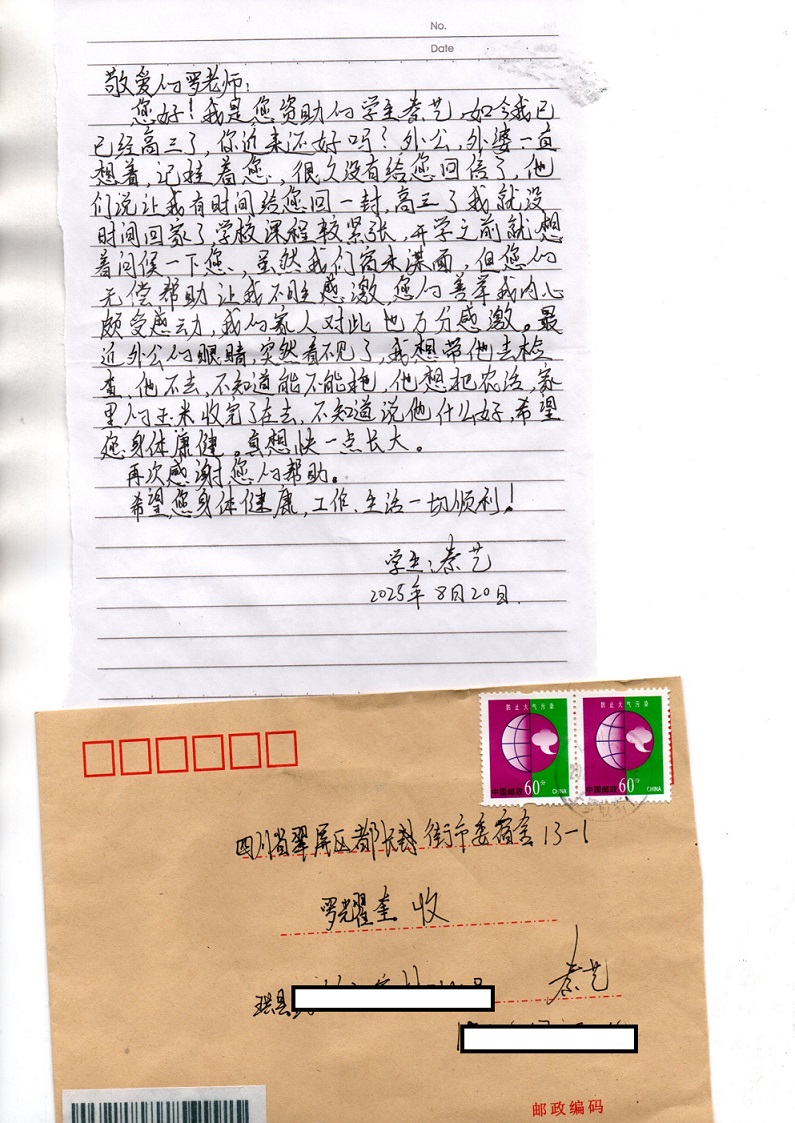 No.
Date
敬爱的罗老师：
您好！我是您资助的学生秦艺，如今我已
已经高三了，你近来还好吗？外公，外婆一直
想着，记挂着您，很久没有给您回信了，他
们说让我有时间给您回一封，高三了我就没
时间回家了，学校课程较紧张，开学之前就想
着问候一下您，虽然我们宿未谋面，但您的
无偿帮助让我不胜感激，您的善举我内心
颇受感动，我的家人对此也万分感激。最
近外公的眼睛，突然看不见了，我想带他去检
查，他不去，不知道能不能拖，他想把农活，家
里的玉米收完了在去，不知道说他什么好，希望
您身体康健。真想快一点长大。
再次感谢您的帮助。
希望您身体健康，工作、生活一切顺利！
学生：秦艺
2025年8月20日.
防止大气污染
中国邮政 60分 CHINA
防止大气污染
中国邮政 60分 CHINA
四川省翠屏区都长街市委宿舍13-1
罗耀奎 收
珙县
秦艺
邮政编码